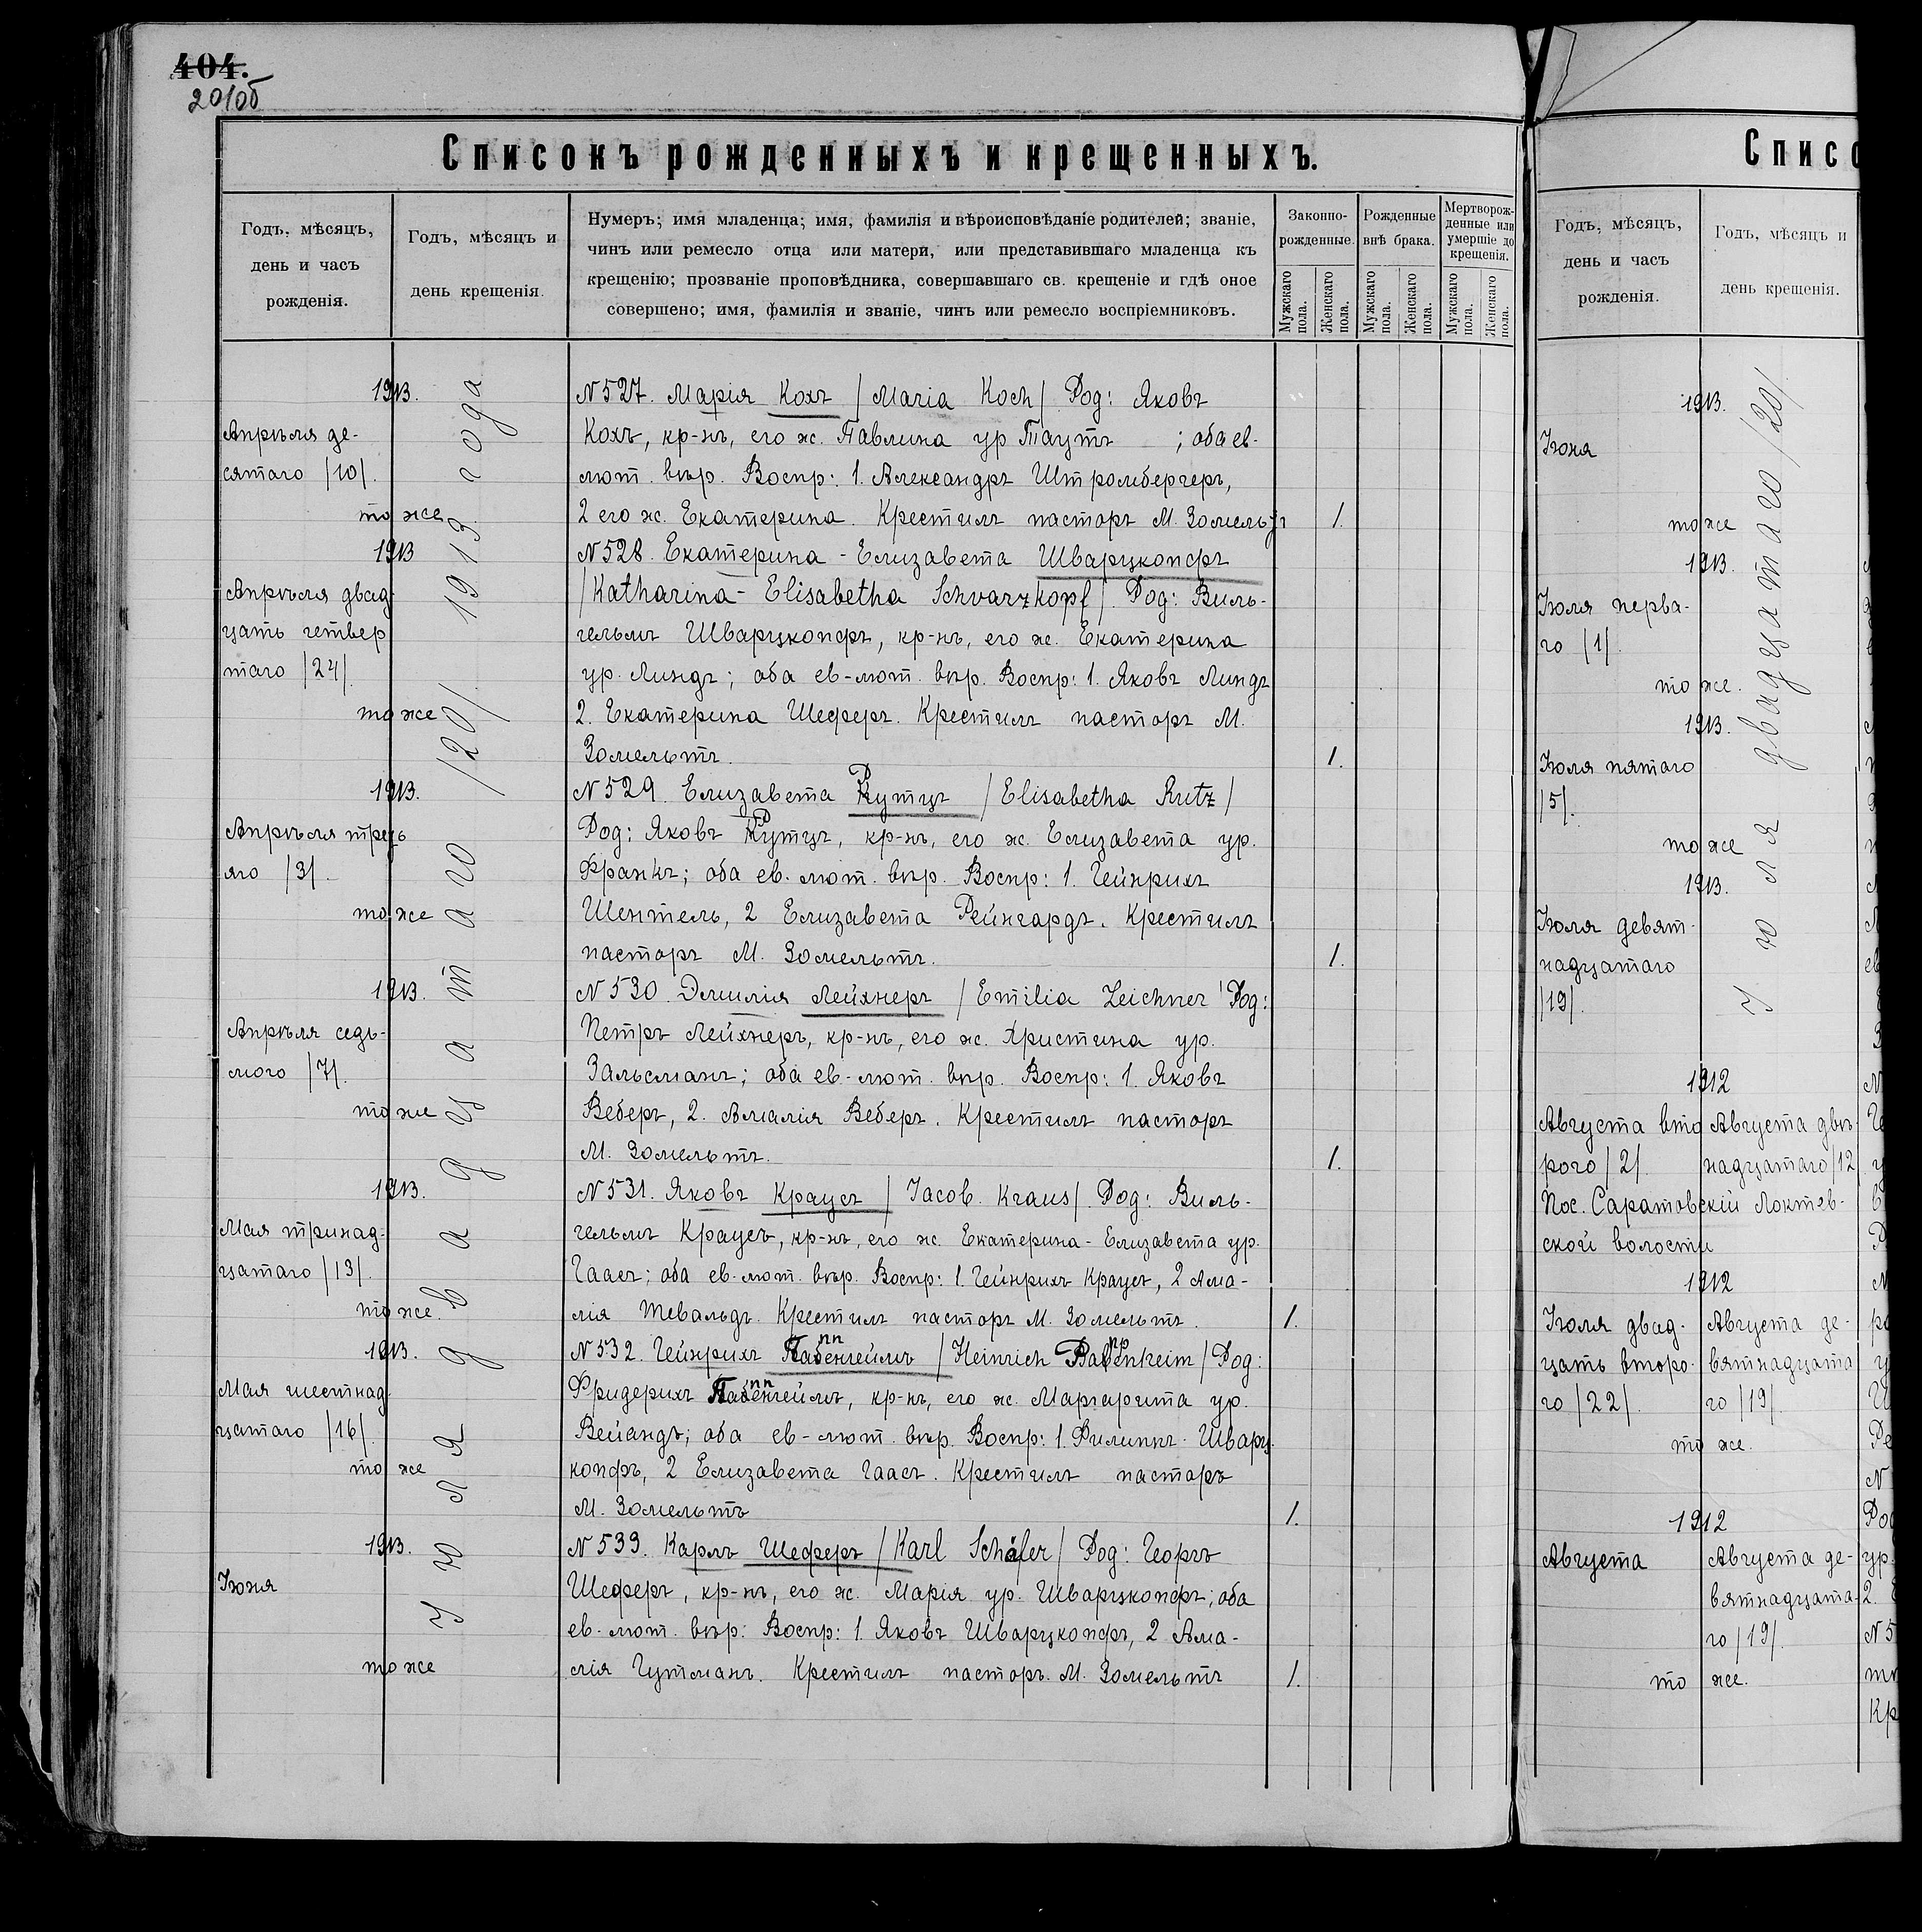 404.
201об
Списокъ рожденныхъ и крещенныхъ.
Годъ, мѣсяцъ,
день и часъ
рожденія.
Годъ, мѣсяцъ и
день крещенія.
Нумеръ; имя младенца; имя, фамилія и вѣроисповѣданіе родителей; званіе,
чинъ или ремесло отца или матери, или представившаго младенца къ
крещенію; прозваніе проповѣдника, совершавшаго св. крещеніе и гдѣ оное
совершено; имя, фамилія и званіе, чинъ или ремесло воспріемниковъ.
Законно-
рожденные.
Рожденные
внѣ брака.
Мертворож-
денные или
умершіе до
крещенія.
Мужскаго
пола.
Женскаго
пола.
Мужскаго
пола.
Женскаго
пола.
Мужскаго
пола.
Женскаго
пола.
Iюля двадцатаго /20/ 1913 года
1913.
Апрѣля де-
сятаго /10/.
тоже
N 527. Марія Кохъ /Maria Koch/. Род: Яковъ
Кохъ, кр-нъ, его ж. Павлина ур Таутъ ; оба ев-
лют. вѣр. Воспр: 1. Александръ Штромбергеръ,
2 его ж. Екатерина. Крестилъ пасторъ М. Зомельтъ
1.
1913
Апрѣля двад-
цать четвер
таго /24/.
тоже
N 528. Екатерина - Елизавета Шварцкопфъ
/Katharina - Elisabetha Schvarzkopf/. Род: Виль-
гельмъ Шварцкопфъ, кр-нъ, его ж. Екатерина
ур. Линдъ; оба ев-лют. вѣр. Воспр: 1. Яковъ Линдъ
2. Екатерина Шеферъ. Крестилъ пасторъ М.
Зомельтъ.
1.
1913.
Апрѣля треть
яго /3/.
тоже
N 529. Елизавета Рутцъ /Elisabetha Rutz/
Род: Яковъ Рутцъ, кр-нъ, его ж. Елизавета ур.
Франкъ; оба ев. лют. вѣр. Воспр: 1. Гейнрихъ
Шентель, 2 Елизавета Рейнгардъ. Крестилъ
пасторъ М. Зомельтъ.
1.
1913.
Апрѣля седь-
мого /7/.
тоже
N 530. Эмилія Лейхнеръ /Emilia Leichner/ Род:
Петръ Лейхнеръ, кр-нъ, его ж. Христина ур.
Зальсманъ; оба ев-лют. вѣр. Воспр: 1. Яковъ
Веберъ, 2. Амалія Веберъ. Крестилъ пасторъ
М. Зомельтъ.
1.
1913.
Мая тринад-
цатаго /13/.
тоже.
N 531. Яковъ Краусъ /Jacob. Kraus/. Род: Виль-
гельмъ Краусъ, кр-нъ, его ж. Екатерина - Елизавета ур.
Гаасъ; оба ев-лют. вѣр. Воспр: 1. Гейнрихъ Краусъ, 2 Ама-
лія Тевальдъ. Крестилъ пасторъ М. Зомельтъ.
1.
1913.
Мая шестнад
цатаго /16/.
тоже
N 532. Гейнрихъ Паппенгеймъ /Heinrich Pappenheim/ Род:
Фридерихъ Паппенгеймъ, кр-нъ, его ж. Маргарита ур.
Вейандъ; оба ев-лют. вѣр. Воспр: 1. Филиппъ Шварц-
копфъ, 2 Елизавета Гаасъ. Крестилъ пасторъ
М. Зомельтъ
1.
1913.
Iюня
тоже
N 533. Карлъ Шеферъ /Karl Schäfer/ Род: Георгъ
Шеферъ, кр-нъ, его ж. Марія ур. Шварцкопфъ; оба
ев-лют. вѣр: Воспр: 1. Яковъ Шварцкопфъ, 2 Ама-
лія Гутманъ. Крестилъ пасторъ М. Зомельтъ
1.
Списо
Годъ, мѣсяцъ,
день и часъ
рожденія.
Годъ, мѣсяцъ и
день крещенія.
Iюля двадцатаго /20/
1913.
Iюня
тоже
1913.
Iюля перва-
го /1/.
тоже.
1913.
Iюля пятаго
/5/.
тоже
1913.
Iюля девят-
надцатаго
/19/.
1912
Августа вто
рого /2/.
Августа двѣ-
надцатаго /12/
Пос. Саратовскій Локтев-
ской волости
1912
Iюля двад-
цать второ-
го /22/.
Августа де-
вятнадцата
го /19/.
тоже.
1912
Августа
Августа де-
вятнадцата-
го /19/.
то же.